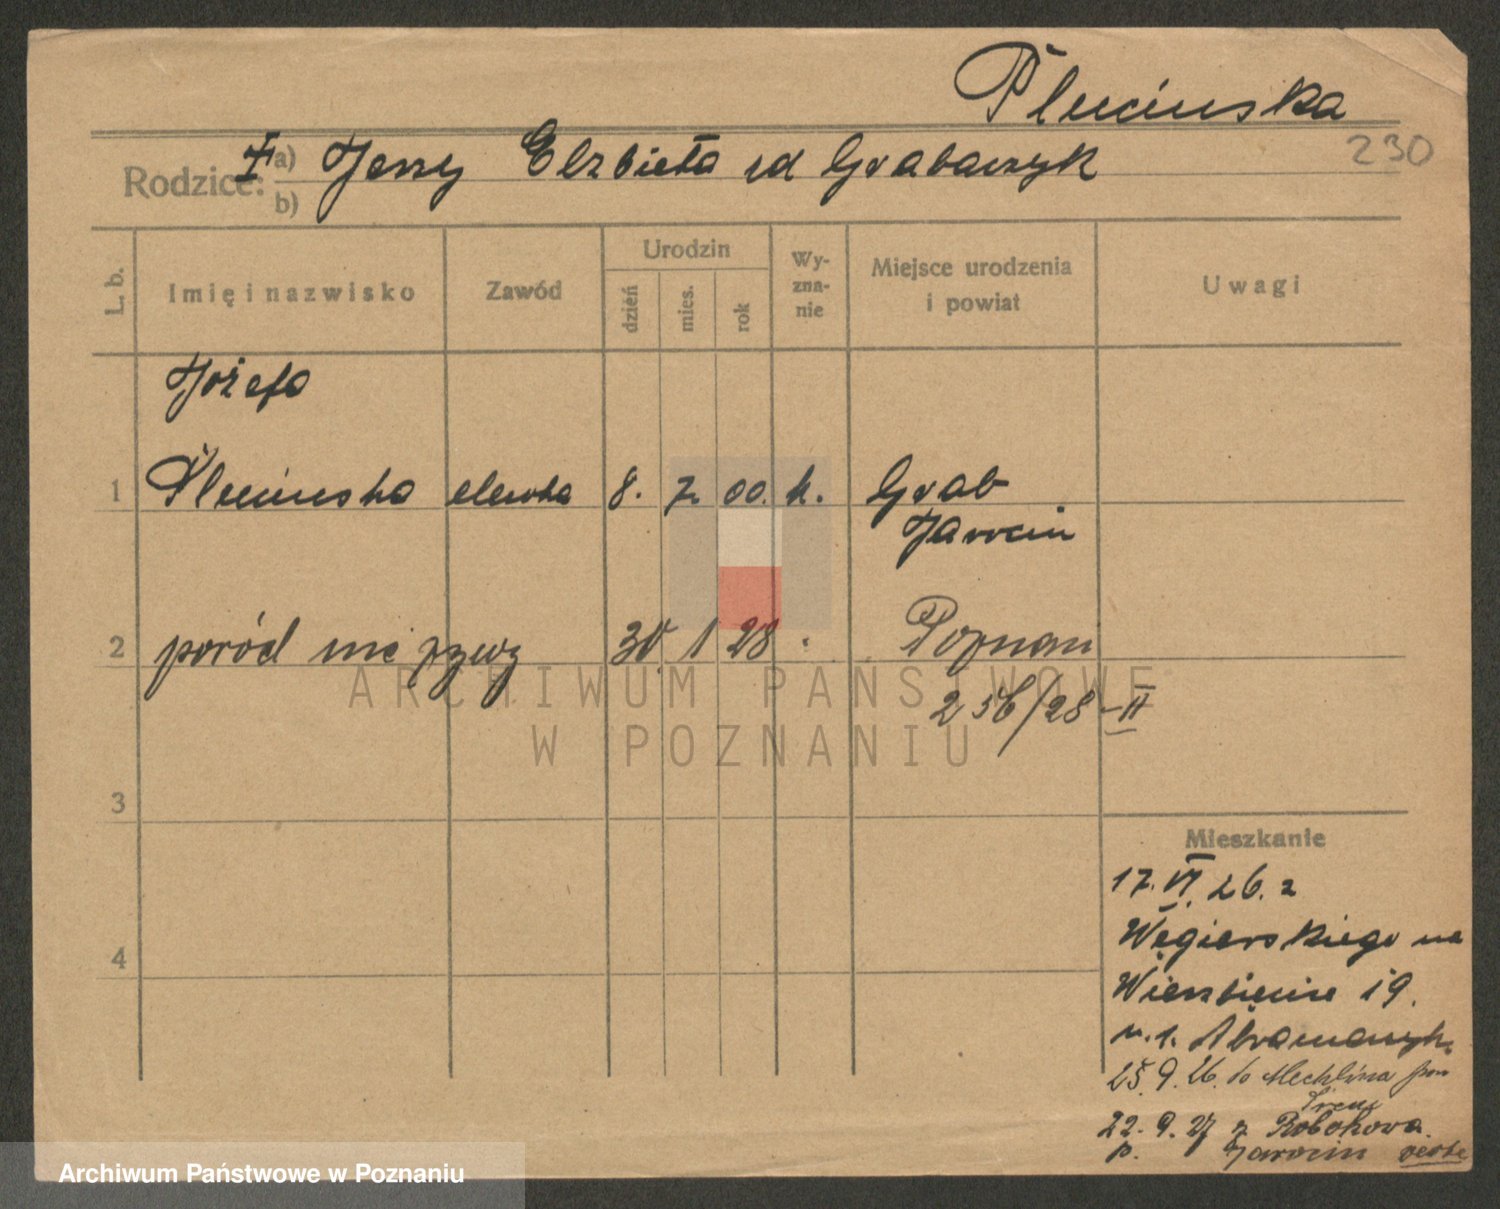 Plucinska
230
Rodzice: a) I Jerzy Elzbieta zd Grabarczyk
b)
L. b.
Imię i nazwisko
Zawód
Urodzin
dzień
mies.
rok
Wy-
zna-
nie
Miejsce urodzenia
i powiat
Uwagi
Józefa
1 Plucinska elewka 8. 7. 00. k. Grab
Jarocin
2 poród nie żywy 30 1 28 Poznań
256/28-II
3
4
Mieszkanie
17.VI.26. z
Węgierskiego na
Wierzbięcice 19.
m.1. Abramczyk
25.9.26. do Mechlina
Śrem
22.9.27 z Robakowa
p. Jarocin verte
ARCHIWUM PAŃSTWOWE
W POZNANIU
Archiwum Państwowe w Poznaniu